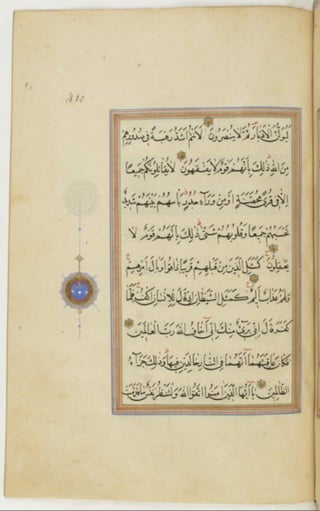 ليولن الأدبار ثم لا ينصرون لأنتم أشد رهبة في صدورهم
من الله ذلك بأنهم قوم لا يفقهون لا يقاتلونكم جميعا
إلا في قرى محصنة أو من وراء جدر بأسهم بينهم شديد
تحسبهم جميعا وقلوبهم شتى ذلك بأنهم قوم لا
يعقلون كمثل الذين من قبلهم قريبا ذاقوا وبال أمرهم
ولهم عذاب أليم كمثل الشيطان إذ قال للإنسان اكفر فلما
كفر قال إني بريء منك إني أخاف الله رب العالمين
فكان عاقبتهما أنهما في النار خالدين فيها وذلك جزاء
الظالمين يا أيها الذين آمنوا اتقوا الله ولتنظر نفس ما قدمت